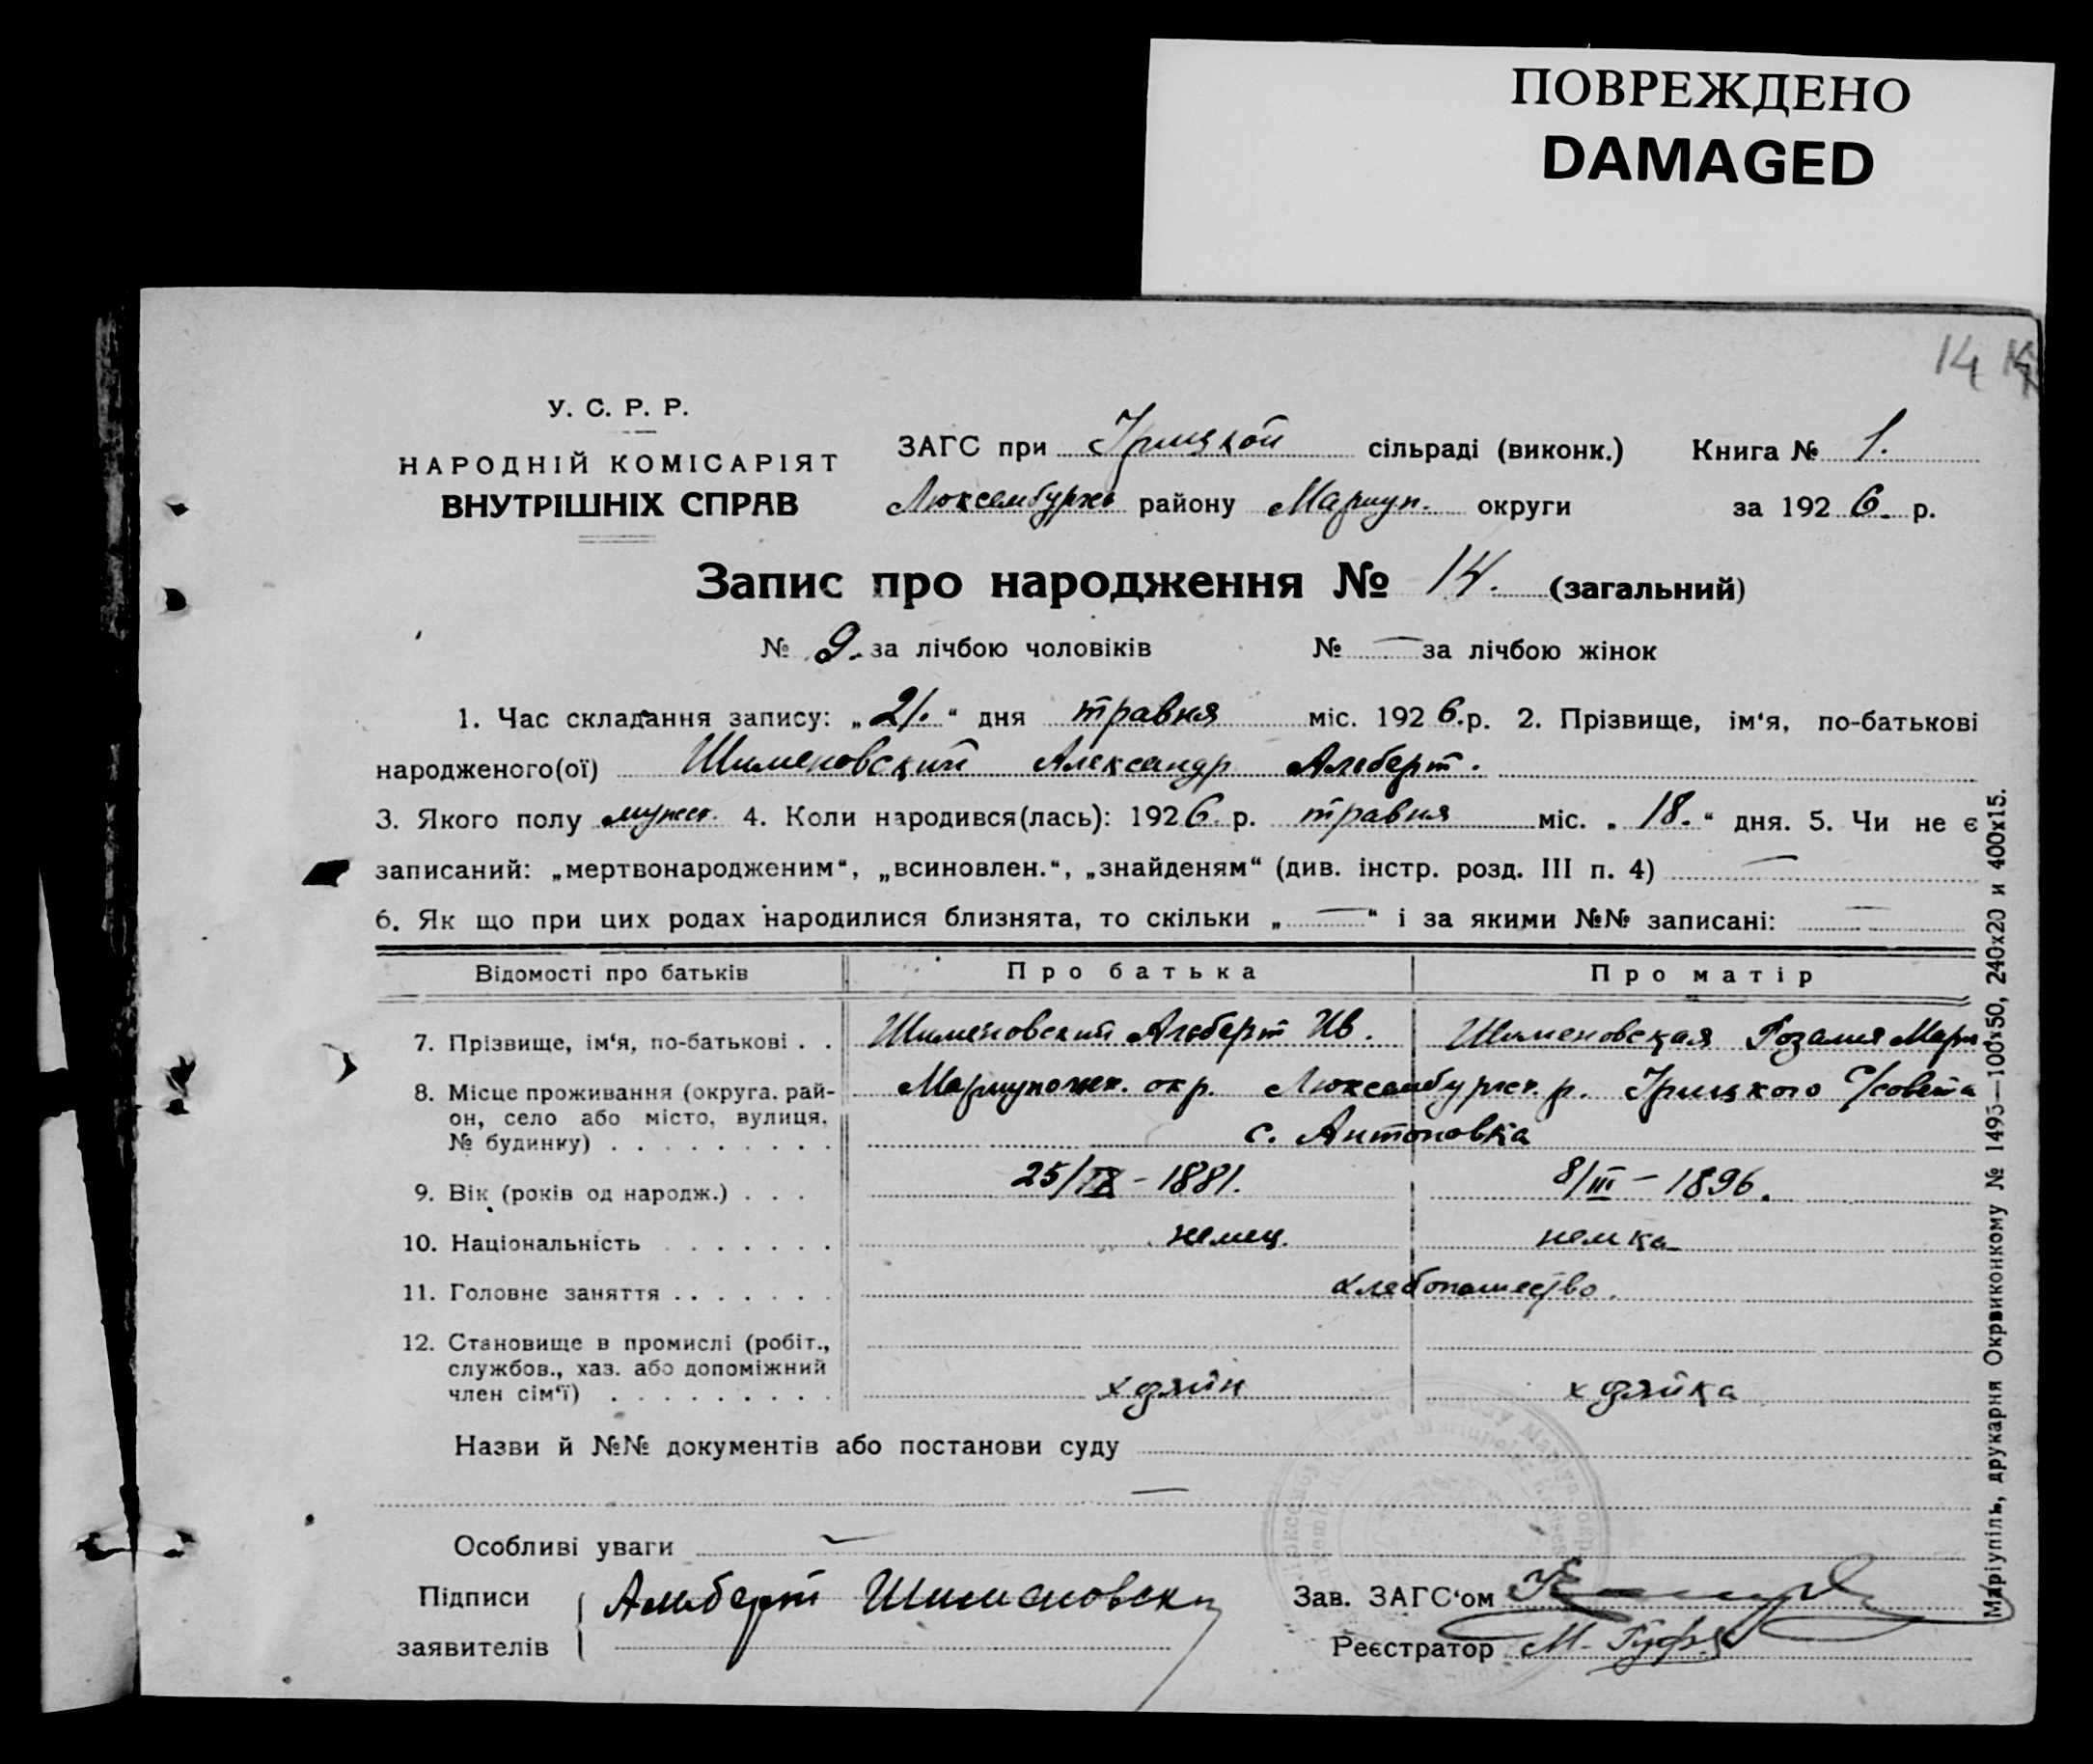 ПОВРЕЖДЕНО
DAMAGED
14
У. С. Р. Р.
НАРОДНІЙ КОМІСАРІЯТ
ВНУТРІШНІХ СПРАВ
ЗАГС при Грицкой сільраді (виконк.) Книга № 1.
Люксембурхь району Мариуп. округи за 1926. р.
Запис про народження № 14. (загальний)
№ 9. за лічбою чоловіків № — за лічбою жінок
1. Час складання запису: „21.“ дня травня міс. 1926.р. 2. Прізвище, ім‘я, по-батькові
народженого(ої) Шименовский Александр Альберт.
3. Якого полу мужск. 4. Коли народився(лась): 1926. р. травня міс. „18.“ дня. 5. Чи не є
записаний: „мертвонародженим“, „всиновлен.“, „знайденям“ (див. інстр. розд. III п. 4) —
6. Як що при цих родах народилися близнята, то скільки „—“ і за якими №№ записані: —
Відомості про батьків Про батька Про матір
7. Прізвище, ім‘я, по-батькові . . Шименовский Альберт Ив. Шименовская Розалия Март.
8. Місце проживання (округа, рай-
он, село або місто, вулиця,
№ будинку) . . . . . . . . .
Мариупольск. окр. Люксембургск. р. Грицкого С/совета
с. Антоновка
9. Вік (років од народж.) . . . 25/IX – 1881. 8/III – 1896.
10. Національність . . . . . . . немец. немка
11. Головне заняття . . . . . . . хлебопашество.
12. Становище в промислі (робіт.,
службов., хаз. або допоміжний
член сім‘ї) . . . . . . . . .
хозяйка
Назви й №№ документів або постанови суду
—
Особливі уваги —
Підписи
заявителів
Альберт Шименовски
Зав. ЗАГС‘ом
Реєстратор М.
Маріупіль, друкарня Окрвиконкому № 1495—100×50, 240х20 и 400х15.